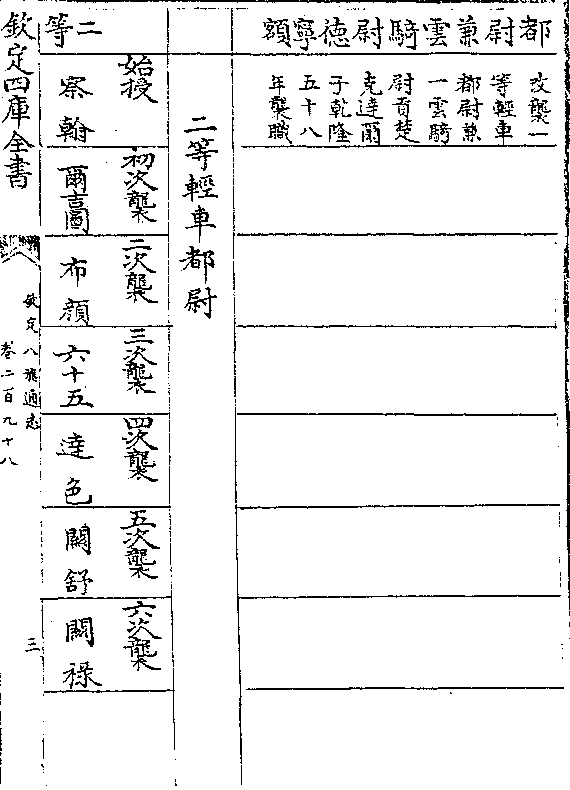 都尉兼雲騎尉德寧額
改襲一
等輕車
都尉兼
一雲騎
尉貢楚
克達爾
子乾隆
五十八
年襲職
二等輕車都尉
二等
始授
察翰
初次襲
爾吉圖
二次襲
布顏
三次襲
六十五
四次襲
達色
五次襲
關舒
六次襲
關祿
欽定四庫全書
欽定八旗通志
卷二百九十八
三